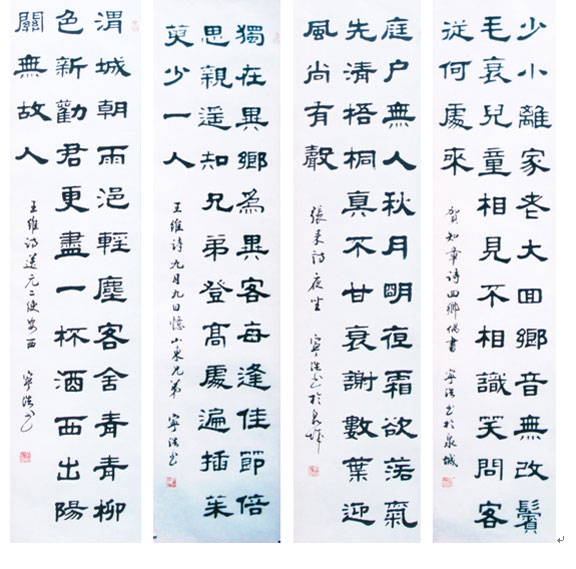 少小離家老大回鄉音無改鬢
毛衰兒童相見不相識笑問客
從何處來
賀知章詩回鄉偶書 寧浩书於泉城
庭户無人秋月明夜霜欲落氣
先清梧桐真不甘衰謝數葉迎
風尚有聲
張耒詩夜坐 寧浩书於泉城
獨在異鄉為異客每逢佳節倍
思親遥知兄弟登高處遍插茱
萸少一人
王維诗九月九日憶山東兄弟 寧浩书
渭城朝雨浥輕塵客舍青青柳
色新勸君更盡一杯酒西出陽
關無故人
王維詩送元二使安西 寧浩书